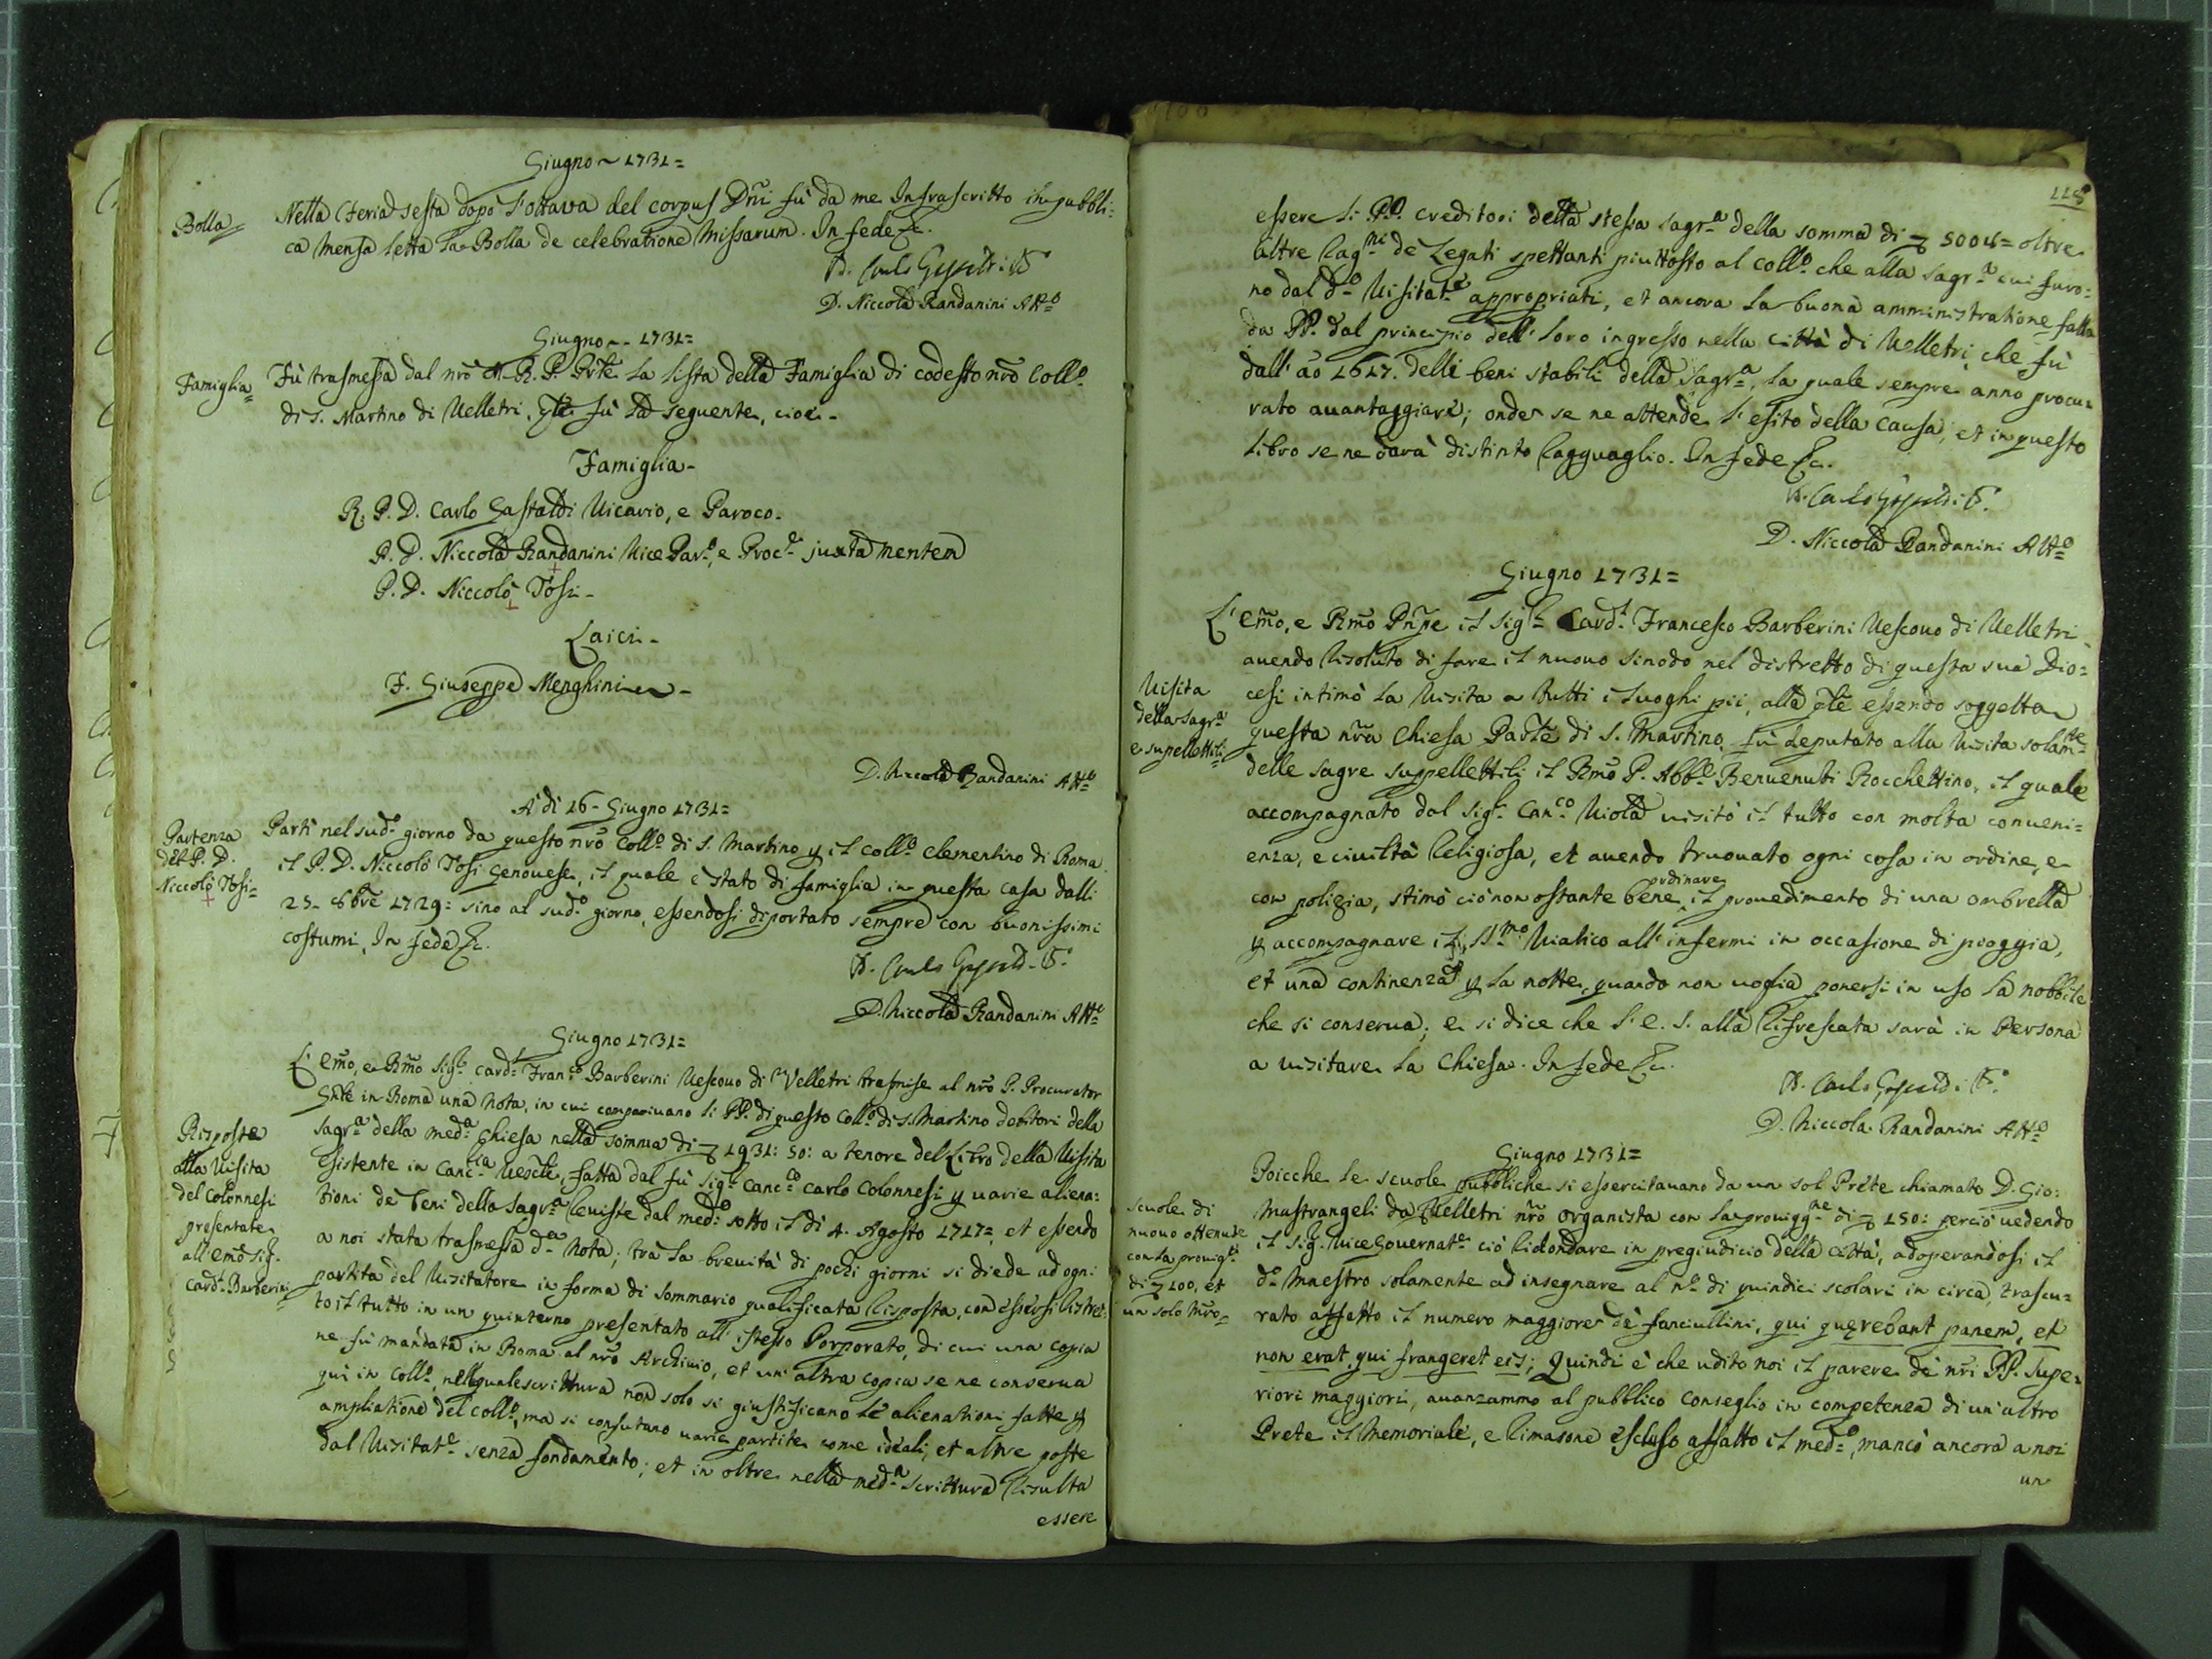 Giugno ~ 1731=
Bolla
Nella Feria sesta dopo l'ottava del corpus Dñi fù da me Infrascritto in pubbli:
ca Mensa letta la Bolla de celebratione Missarum. In fede &c.
D. Niccola Randanini Att.o
Giugno ~ 1731=
Famiglia=
Fù trasmessa dal nrõ M. R. P. Prõle la lista della Famiglia di codesto nrõ Coll.o
di S. Martino di Velletri, qle fù la seguente, cioè -
Famiglia -
R. P. D. Carlo Gastaldi Vicario, e Paroco.
P. D. Niccola Randanini Vice Par.o, e Proc.e juxta mentem
P. D. Niccolò Tosi -
Laici -
F. Giuseppe Menghini -
D. Niccola Randanini Att.o
A dì 16 - Giugno 1731=
Partenza
del P. D.
Niccolò Tosi=
Partì nel sud.o giorno da questo nrõ Coll.o di S. Martino p il Coll.o Clementino di Roma
il P. D. Niccolò Tosi Genovese, il quale è stato di famiglia in questa casa dalli
25 - 8bre 1729= sino al sud.o giorno, essendosi diportato sempre con buonissimi
costumi, In fede &c.
D. Niccola Randanini Att.o
Giugno 1731=
Risposta
alla Visita
del Colonnesi
presentata
all'Emõ Sig.
Card.l Barberini
L'Emõ, e Rmõ Sig.r Card.l Fran.co Barberini Vescovo di Velletri trasmise al nrõ P. Procurator
Gñle in Roma una Nota, in cui comparivano li PP. di questo Coll.o di S. Martino debitori della
Sagr.a della med.a Chiesa nella somma di ∇ 1931: 50: a tenore del Libro della Visita
esistente in Canc.ia Vescle, fatta dal fù Sig.r Canc.o Carlo Colonnesi p varie aliena:
tioni de beni della Sagr.a reviste dal med.o sotto il dì 4. Agosto 1717=, et essendo
a noi stata trasmessa d.a Nota, trà la brevità di pochi giorni si diede ad ogni
partita del Visitatore in forma di sommario qualificata risposta, con essersi ristret:
to il tutto in un quinterno presentato all'istesso Porporato, di cui una copia
ne fù mandata in Roma al nrõ Archivio, et un'altra copia se ne conserva
quì in Coll.o, nella quale scrittura non solo si giustificano le alienationi fatte p
ampliatione del Coll.o, ma si confutano varie partite come ideali, et altre poste
dal Visitat.e senza fondamento; et in oltre nella med.a scrittura risulta
essere
118
essere li PP. creditori della stessa Sagr.a della somma di ∇ oltre
altre rag.ni de Legati spettanti piuttosto al coll.o che alla Sagr.a cui furo:
no dal d.o Visitat.e appropriati, et ancora la buona amministratione fatta
da PP. dal principio dell' loro ingresso nella città di Velletri, che fù
dall' ão 1617. delli beni stabili della Sagr.a, la quale sempre anno procu=
rato avantaggiare; onde se ne attende l'esito della causa, et in questo
Libro se ne darà distinto ragguaglio. In fede &c.
D. Niccola Randanini Att.o
Giugno 1731=
Visita
della Sagr.a
e supellettili
L'Emõ, e Rmõ Pñpe il Sig.r Card.l Francesco Barberini Vescovo di Velletri
avendo risoluto di fare il nuovo sinodo nel distretto di questa sua Dio=
cesi intimò la Visita a tutti i luoghi pii, alla qle essendo soggetta
questa nrã Chiesa Parõle di S. Martino, fù deputato alla Visita solam.te
delle sagre suppellettili il Rmõ P. Abb.e Benvenuti Rocchettino, il quale
accompagnato dal Sig.r Can.co Viola visitò il tutto con molta conveni=
enza, e civiltà religiosa, et avendo truovato ogni cosa in ordine, e
con polizia, stimò ciò non ostante bene ordinare il provedimento di una ombrella
p accompagnare il SS.mo Viatico all'infermi in occasione di pioggia,
et una continenza p la notte, quando non voglia ponersi in uso la nobbile
che si conserva; e si dice che S. E. S. alla rifrescata sarà in Persona
a visitare la Chiesa. In fede &c.
D. Niccola Randanini Att.o
Giugno 1731=
Scuole di
nuovo ottenute
con la provig.e
di ∇ 100, et
un solo Mrõ=
Poicche le scuole pubbliche si essercitavano da un sol Prete chiamato D. Gio:
Mastrangeli da Velletri nrõ organista con la provigg.ne di ∇ 150: perciò vedendo
il Sig.r Vice Governat.e ciò ridondare in pregiudicio della Città, adoperandosi il
d.o Maestro solamente ad insegnare al n.o di quindici scolari in circa, trascu=
rato affatto il numero maggiore dè fanciullini, qui quęrebant panem, et
non erat qui frangeret eis; Quindi è che udito noi il parere dè nrĩ PP. Supe=
riori maggiori, avanzammo al pubblico Conseglio in competenza di un'altro
Prete il Memoriale, e rimasone escluso affatto il med.o, mancò ancora a noi
un